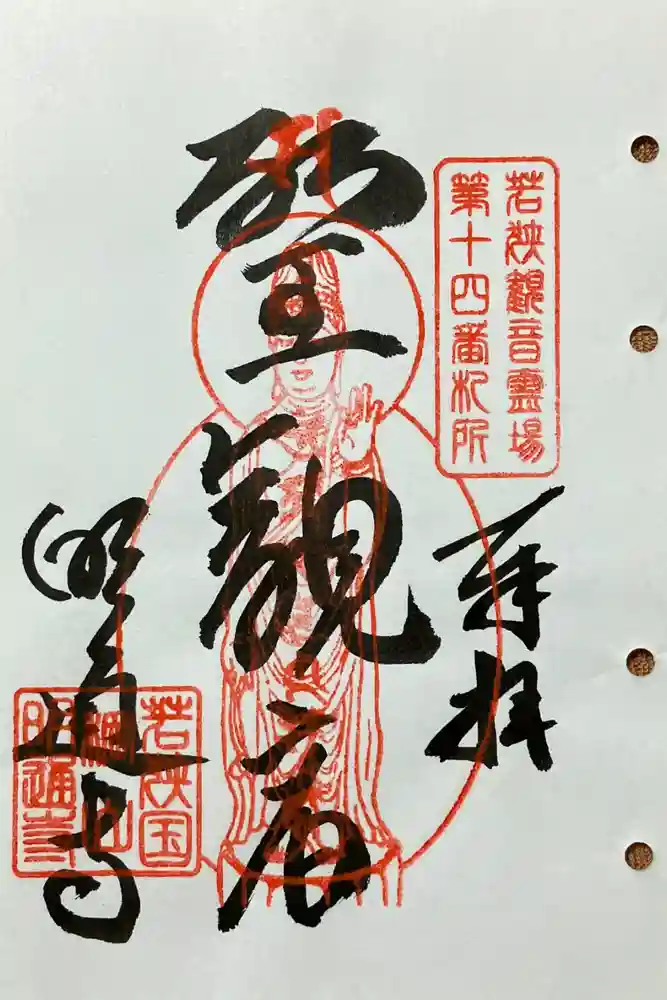 奉拝
若狭観音霊場
第十四番札所
聖観音
明通寺
若狭国
棡山
明通寺